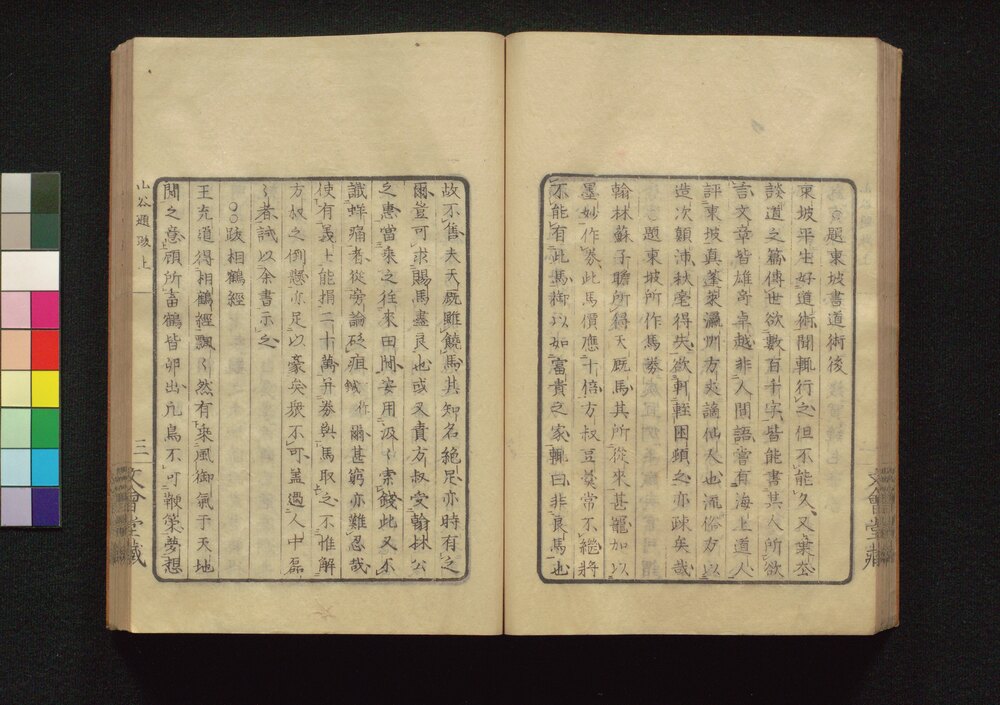 題東坡書道術後
東坡平生好道術聞輒行之但不能久又棄去
談道之篇傳世欲數百千字皆能書其人所欲
言文章皆雄奇卓越非人間語嘗有海上道人
評東坡真蓬萊瀛洲方丈謫仙人也流俗方以
造次顛沛秋毫得失欲軒輊困頓之亦疎矣哉
題東坡所作馬券
翰林蘇子瞻所得天厩馬其所從來甚寵加以
墨妙作券此馬價應十倍方叔豆羹常不繼將
不能有此馬御以如富貴之家輒曰非良馬也
故不售夫天厩雖饒馬其知名絶足亦時有之
爾豈可求賜馬盡良也或又責方叔受翰林公
之惠當乗之徃來田間安用汲〻索錢此又不
識蛘痛者從旁論砭疽爾甚窮亦難忍哉
使有義士能捐二十萬并券與馬取之不惟解
方叔之倒懸亦足以豪矣衆不可蓋遇人中磊
〻者試以余書示之
〇〇跋相鶴經
王充道得相鶴經飄〻然有乗風御氣于天地
間之意顧所畜鶴皆卵出凡鳥不可鞭策夢想
山谷題跋上
三
文會堂藏
文會堂藏